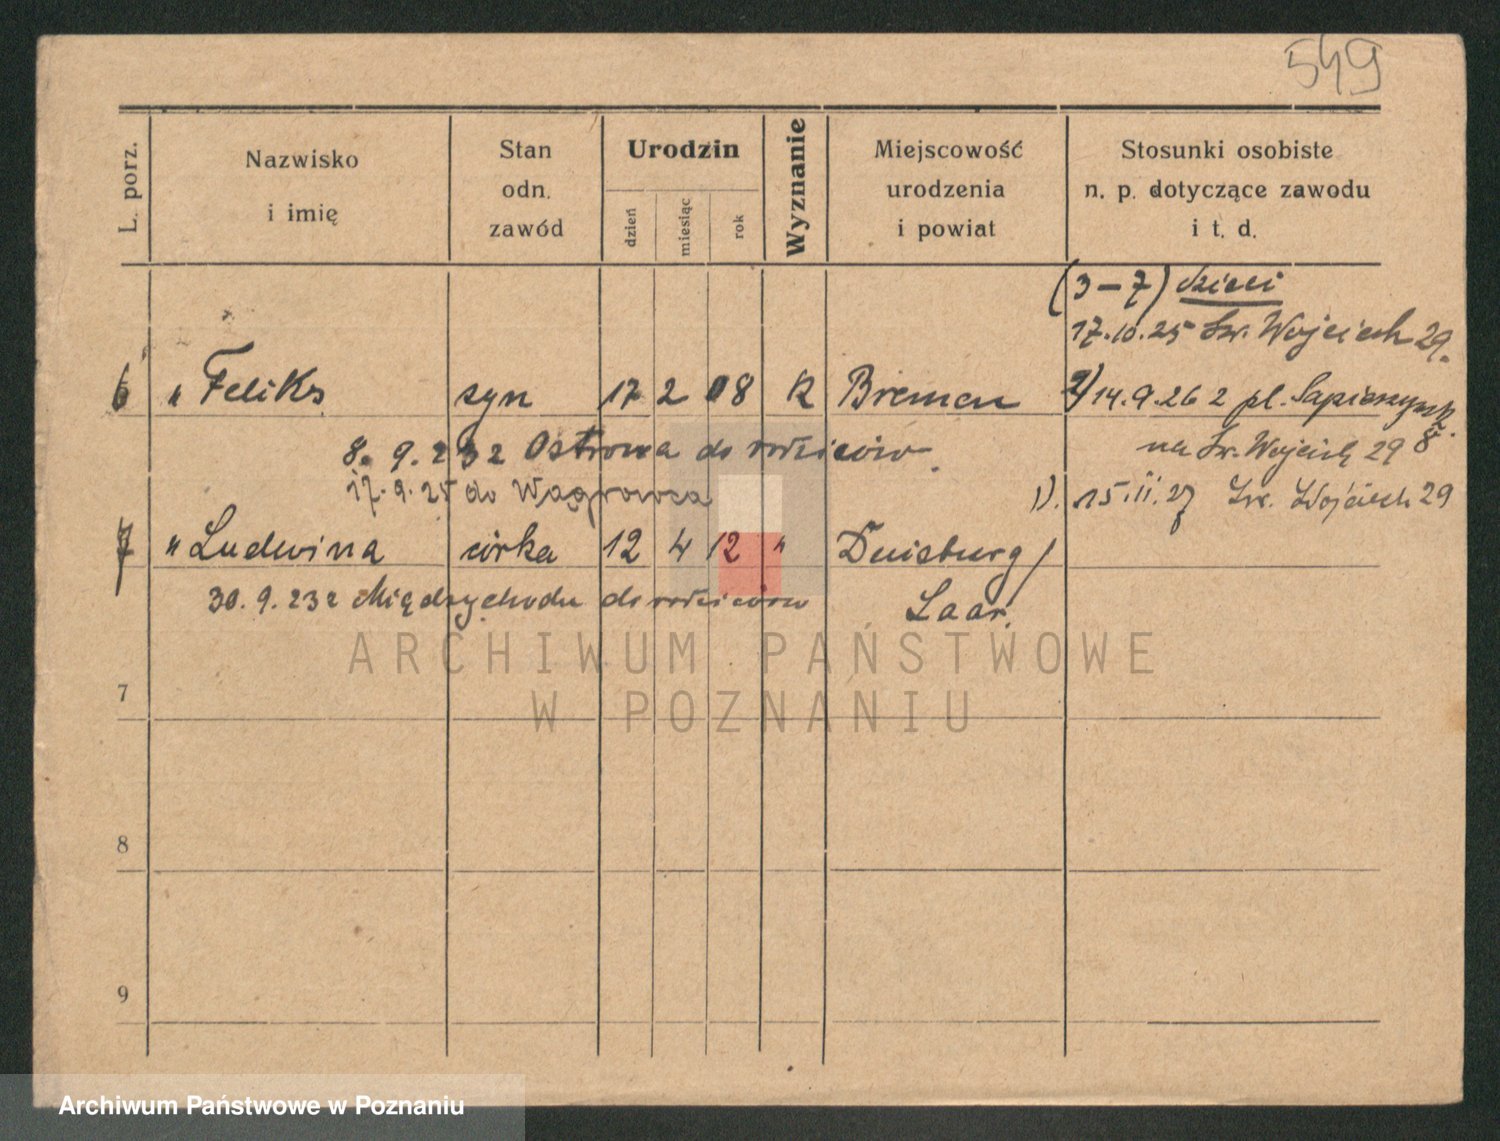 549
L. porz.
Nazwisko
i imię
Stan
odn.
zawód
Urodzin
dzień
miesiąc
rok
Wyznanie
Miejscowość
urodzenia
i powiat
Stosunki osobiste
n. p. dotyczące zawodu
i t. d.
(3–7) dzieci
17.10.25 Św. Wojciech 29.
6 „ Feliks syn 17 2 08 K Bremen 2) 14.9.26 z pl. Sapieżyńsk. 8
8. 9. 23 z Ostrowa do rodziców. na Św. Wojciech 29
17.9.25 do Wągrowca 1). 15.11.27 Św. Wojciech 29
7 „ Ludwina córka 12 4 12 „ Duisburg/
30.9.23 z Międzychodu do rodziców Laar.
ARCHIWUM PAŃSTWOWE
W POZNANIU
7
8
9
Archiwum Państwowe w Poznaniu